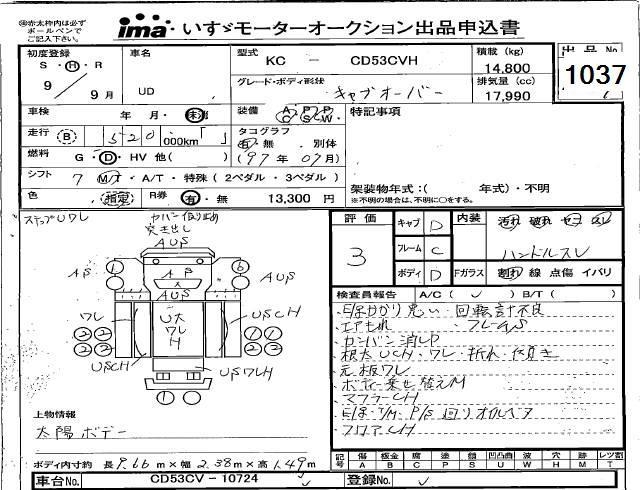 ㊟赤太枠内は必ず
ボールペンで
ご記入下さい。
ima いすゞモーターオークション出品申込書
初度登録
S・H・R
9/9月
車名
UD
型式
KC － CD53CVH
グレード・ボディ形状
キャブオーバー
積載 (kg)
14,800
排気量 (cc)
17,990
出品 No
1037
車検
年 月・未
装備
A C P S P W
特記事項
走行
B 520 000km「 」
タコグラフ
有・無・別体
(97年07月)
燃料
G・D・HV 他( )
シフト
7 MT・A/T・特殊 (2ペダル・3ペダル)
架装物年式：( 年式)・不明
※不明の場合は、不明に○をする。
色
指定
R券
有・無
13,300 円
ストップUワレ
AUS
AS
AUS
AUS
AUS
ワレ
U大
ワレ
H
USCH
USCH
USワレH
評価
3
キャブ D
フレーム C
ボディ D
内装
汚れ 破れ ヤコ スレ
ハンドルスレ
Fガラス
割れ 線 点傷 イバリ
検査員報告
A/C( ) B/T( )
E/Gかかり悪い・回転計不良
エアもれ
カンバン消しP
元板ワレ
ボデー乗せ替えM
マフラーCH
フロアCH
上物情報
太陽ボデー
ボディ内寸約 長9.66m×幅2.38m×高1.49m
記号
傷 A
板金 B
腐 C
塗 P
錆 S
凹凸曲 U
波 W
穴 H
跡 M
レツ割 T
車台No.
CD53CV－10724
登録No.